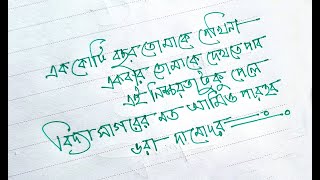 এক কোটি বছর তোমাকে দেখিনা
একবার তোমাকে দেখতে পাব
এই নিশ্চয়তা টুকু পেলে
বিদ্যাসাগরের মত আমিও পারতুম
ভরা দামোদর